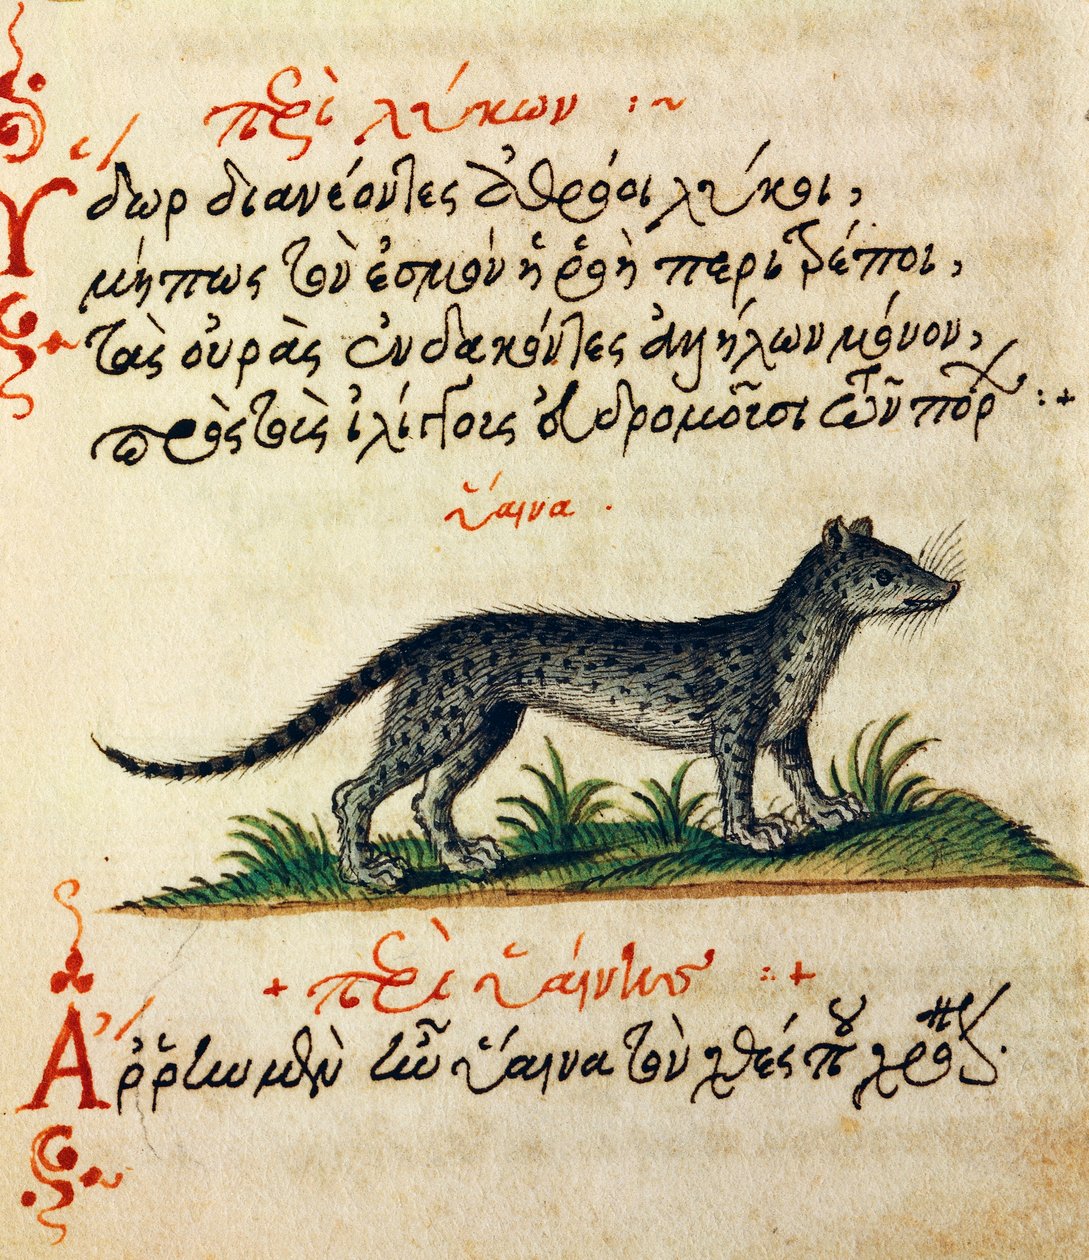 περὶ λύκων :~
Ὕδωρ διανέοντες ἀθρόοι λύκοι,
μήπως τὸν ἐσμὸν ἡ ῥοὴ περιτρέποι,
τὰς οὐρὰς ἐνδακόντες ἀλλήλων μόνον,
πρὸς τοὺς ἰλίγγους εὐδρομοῦσι τῶν πόρων :+
ὕαινα .
+ περὶ ὑαίνης :+
Ἄρρην μὲν ἦν ὕαινα τὸν χθές που χρόνον.